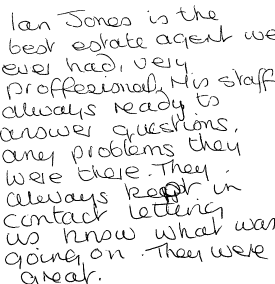 Ian Jones is the
best estate agent we
ever had, very
proffesional, His staff
always ready to
answer questions,
any problems they
were there. They
always kept in
contact letteing
us know what was
going on. They were
great.